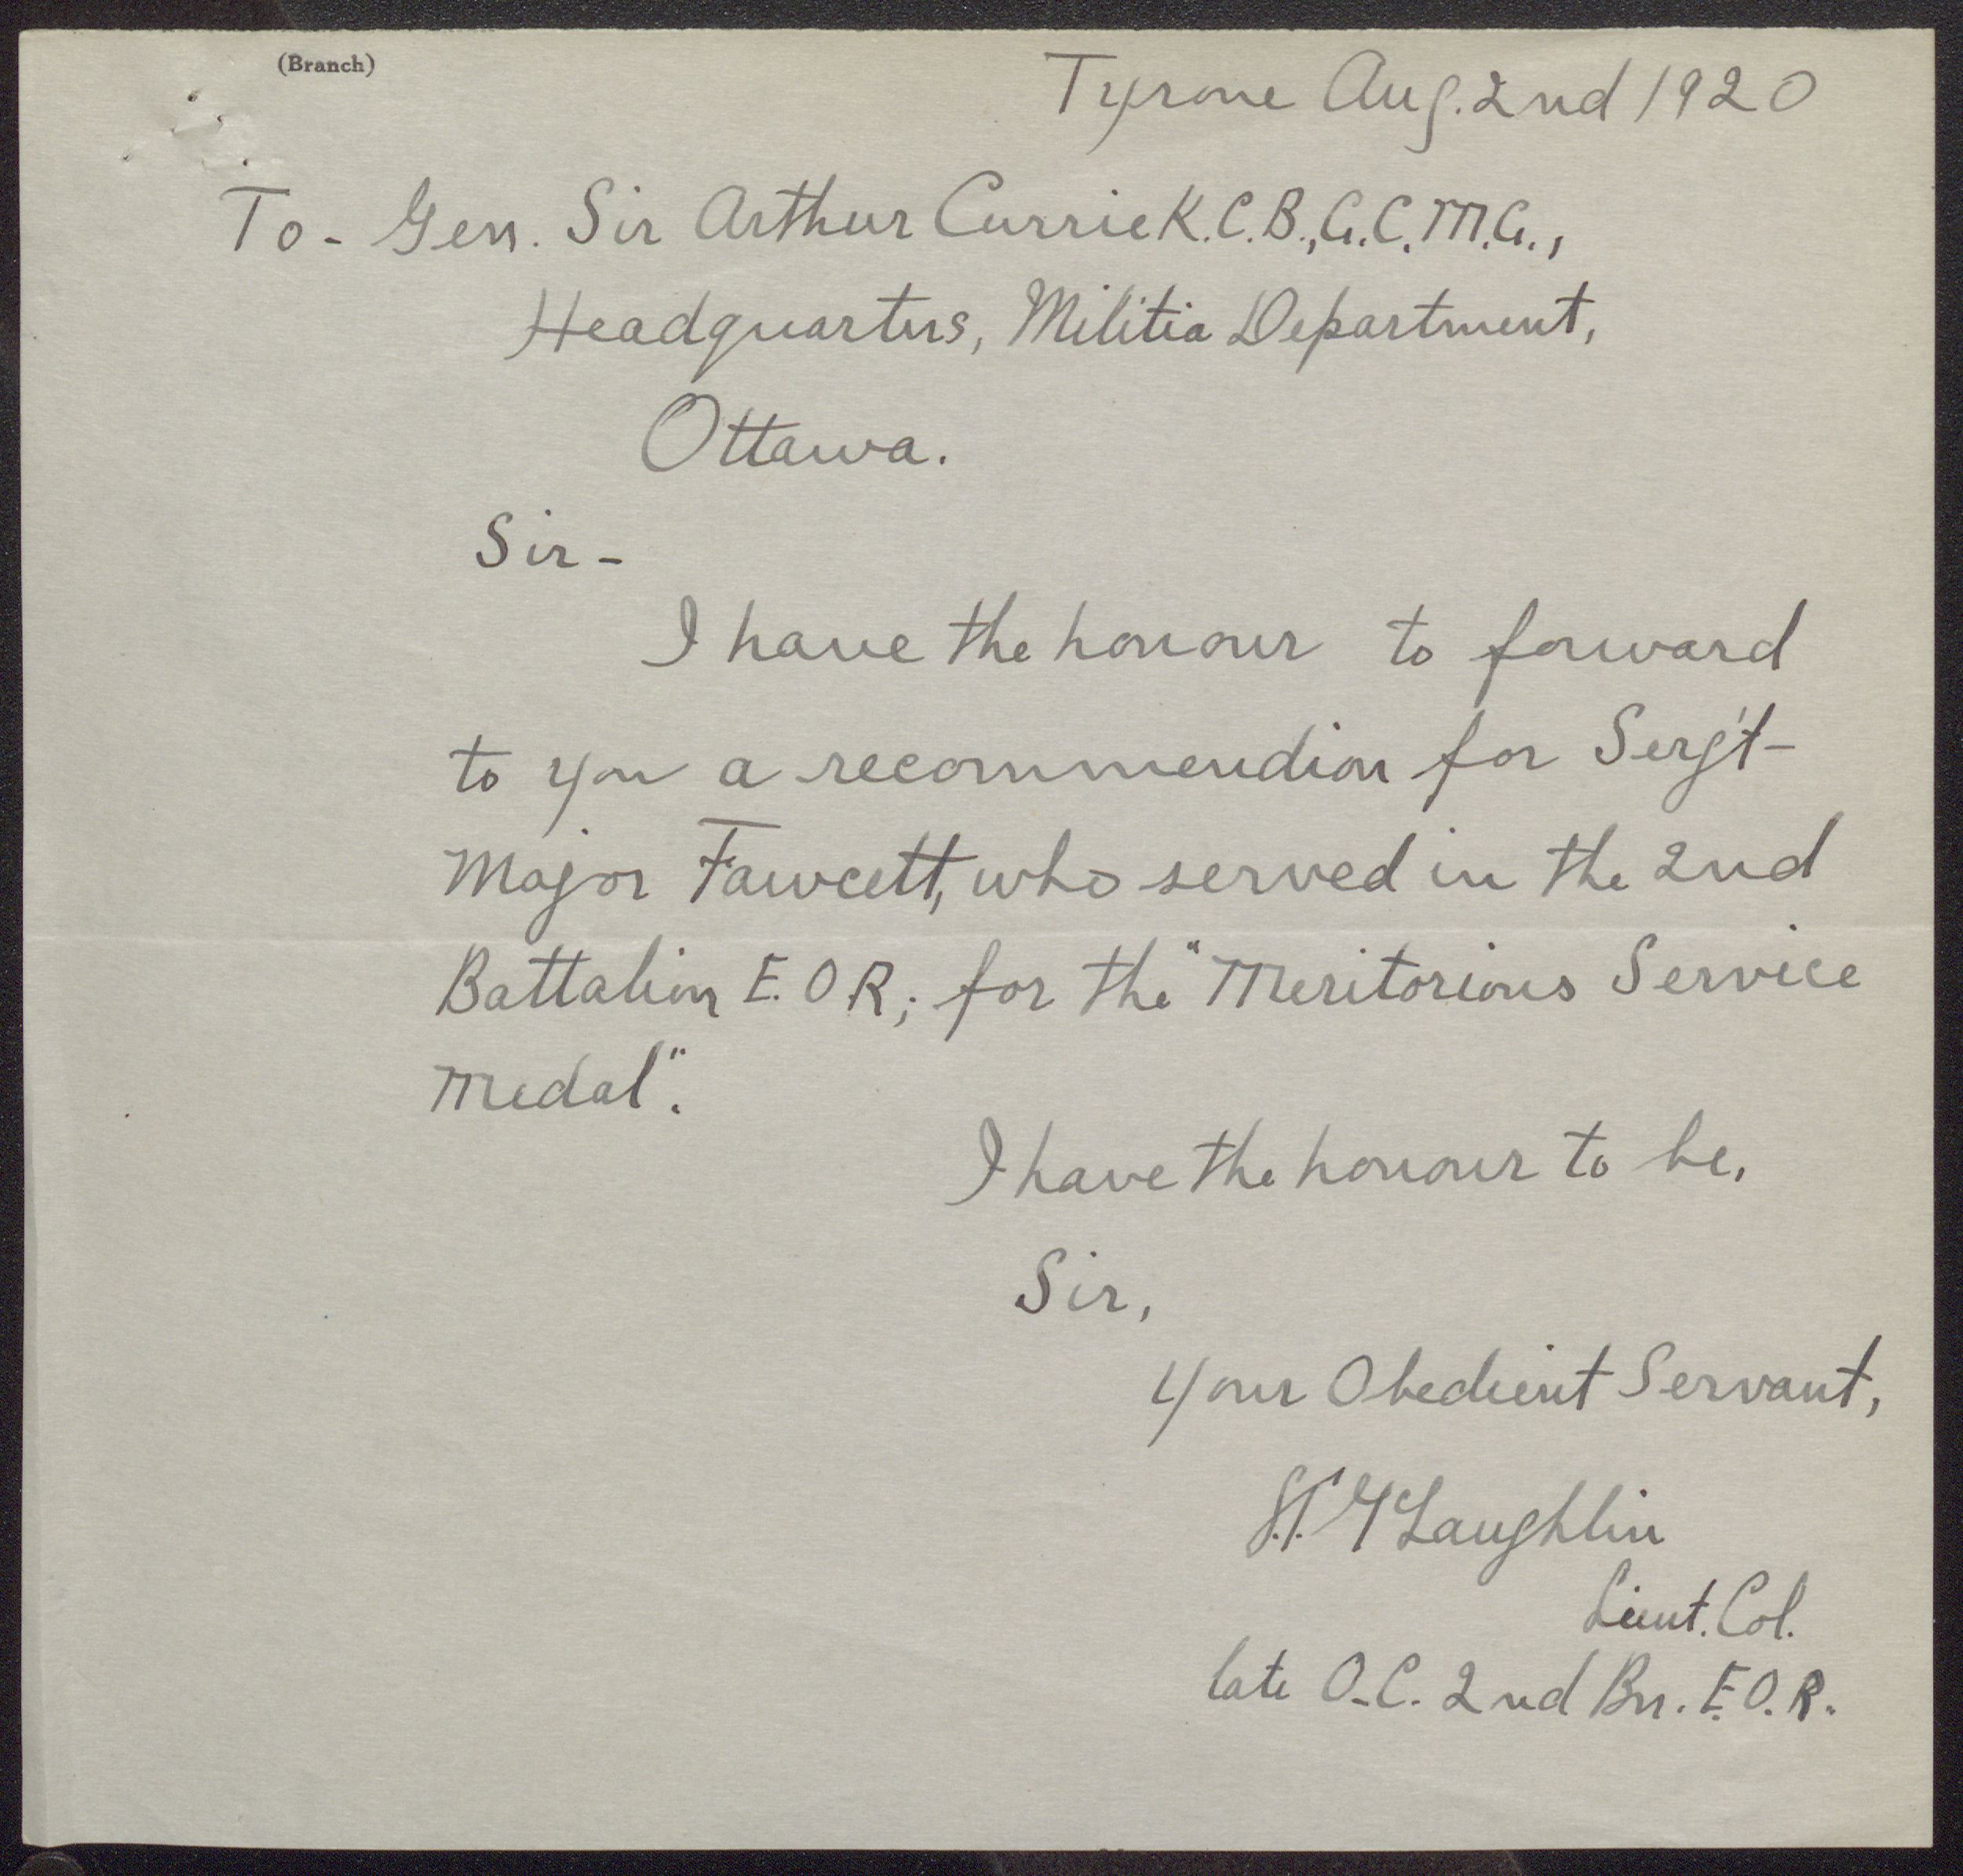 (Branch)
Tyrone Aug. 2nd 1920
To - Gen. Sir Arthur Currie K.C.B., G.C.M.G.,
Headquarters, Militia Department,
Ottawa.
Sir -
I have the honour to forward
to you a recommendion for Serg't-
Major Fawcett, who served in the 2nd
Battalion E.O.R; for the "Meritorious Service
Medal".
I have the honour to be,
Sir,
Your Obedient Servant,
McLaughlin
Lieut. Col.
late O.C. 2nd Bn. E.O.R.